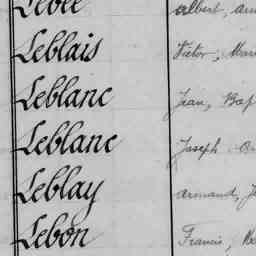 Lebée Albert,
Leblais Victor,
Leblanc Jean, Bap
Leblanc Joseph
Leblay Armand, J
Lebon Francis,